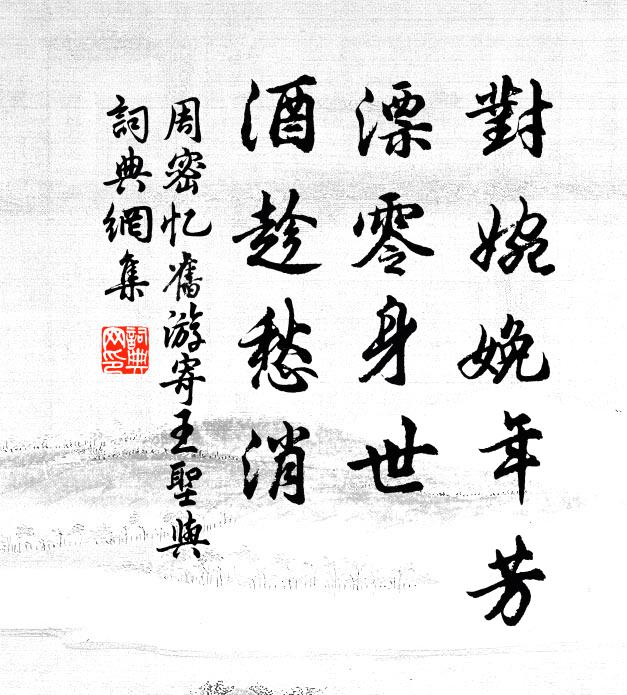 對婉娩年芳
漂零身世
酒趁愁消
周密忆舊游寄王聖與
詞典網集
詞典網印